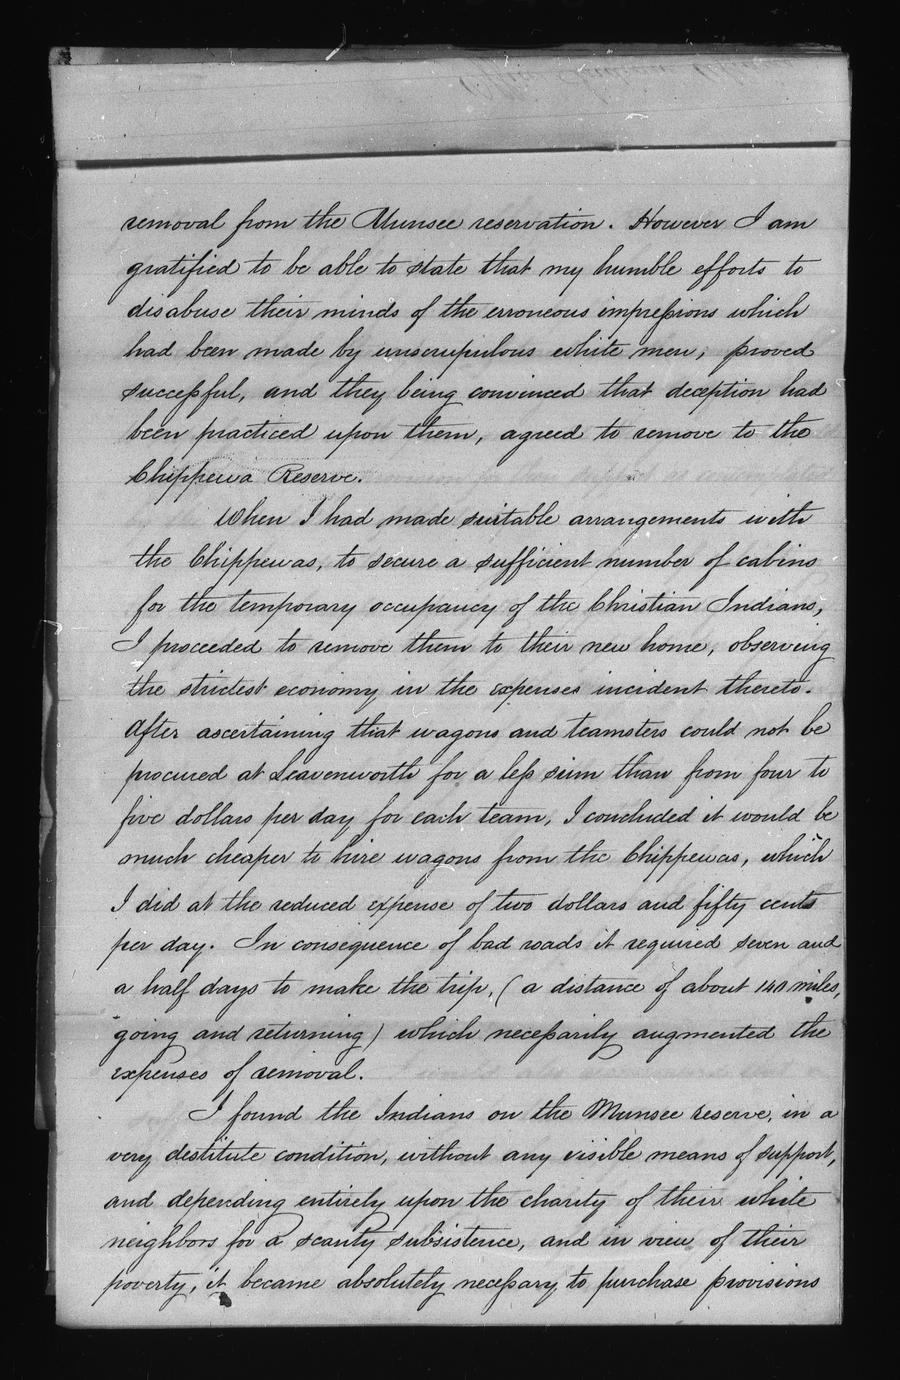 removal from the Munsee reservation. However I am
gratified to be able to state that my humble efforts to
disabuse their minds of the erroneous impressions which
had been made by unscrupulous white men, proved
successful, and they being convinced that deception had
been practiced upon them, agreed to remove to the
Chippewa Reserve.
When I had made suitable arrangements with
the Chippewas, to secure a sufficient number of cabins
for the temporary occupancy of the Christian Indians,
I proceeded to remove them to their new home, observing
the strictest economy in the expenses incident thereto.
After ascertaining that wagons and teamsters could not be
procured at Leavenworth for a less sum than from four to
five dollars per day for each team, I concluded it would be
much cheaper to hire wagons from the Chippewas, which
I did at the reduced expense of two dollars and fifty cents
per day. In consequence of bad roads it required seven and
a half days to make the trip, (a distance of about 140 miles,
going and returning) which necessarily augmented the
expenses of removal.
I found the Indians on the Munsee reserve, in a
very destitute condition, without any visible means of support,
and depending entirely upon the charity of their white
neighbors for a scanty subsistence, and in view of their
poverty, it became absolutely necessary to purchase provisions